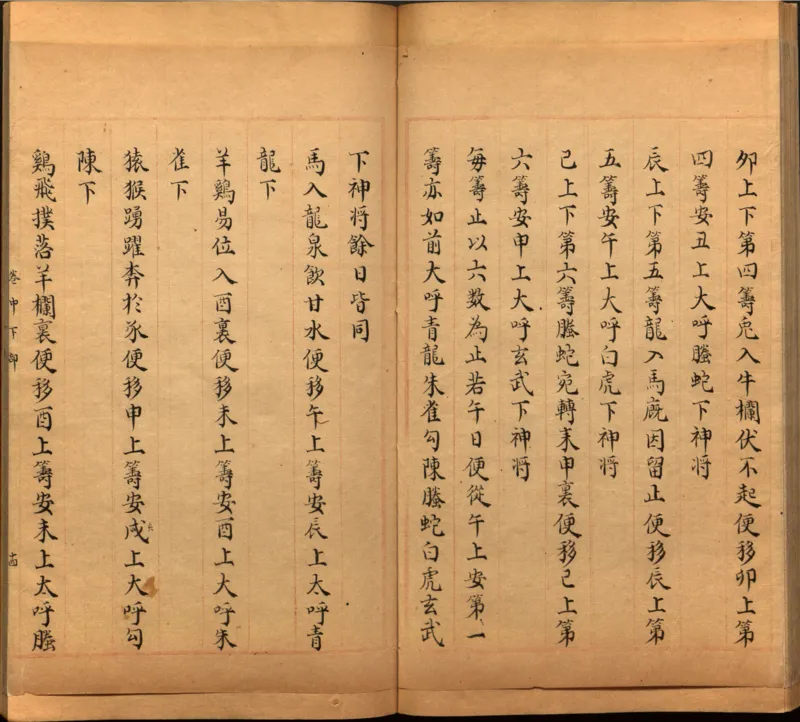 卯上下第四籌兎入牛欄伏不起便移卯上第
四籌安丑上大呼螣蛇下神将
辰上下第五籌龍入馬廐因留止便移辰上第
五籌安午上大呼白虎下神将
巳上下第六籌螣蛇宛轉来申裏便移巳上第
六籌安申上大呼玄武下神将
每籌止以六数為止若午日便從午上安第一
籌亦如前大呼青龍朱雀勾陳螣蛇白虎玄武
下神将餘日皆同
馬入龍泉飲甘水便移午上籌安辰上太呼青
龍下
羊鷄易位入酉裏便移未上籌安酉上大呼朱
雀下
猿猴踴躍奔於豕便移申上籌安戌上大呼勾
陳下
鷄飛撲落羊欄裏便移酉上籌安未上太呼螣